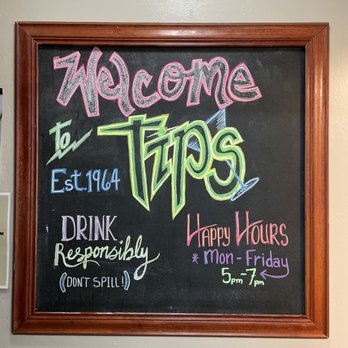 Welcome
To Tips
Est. 1964
DRINK
Responsibly
((DON'T SPILL!))
HAPPY HOURS
* Mon - Friday
5pm-7pm